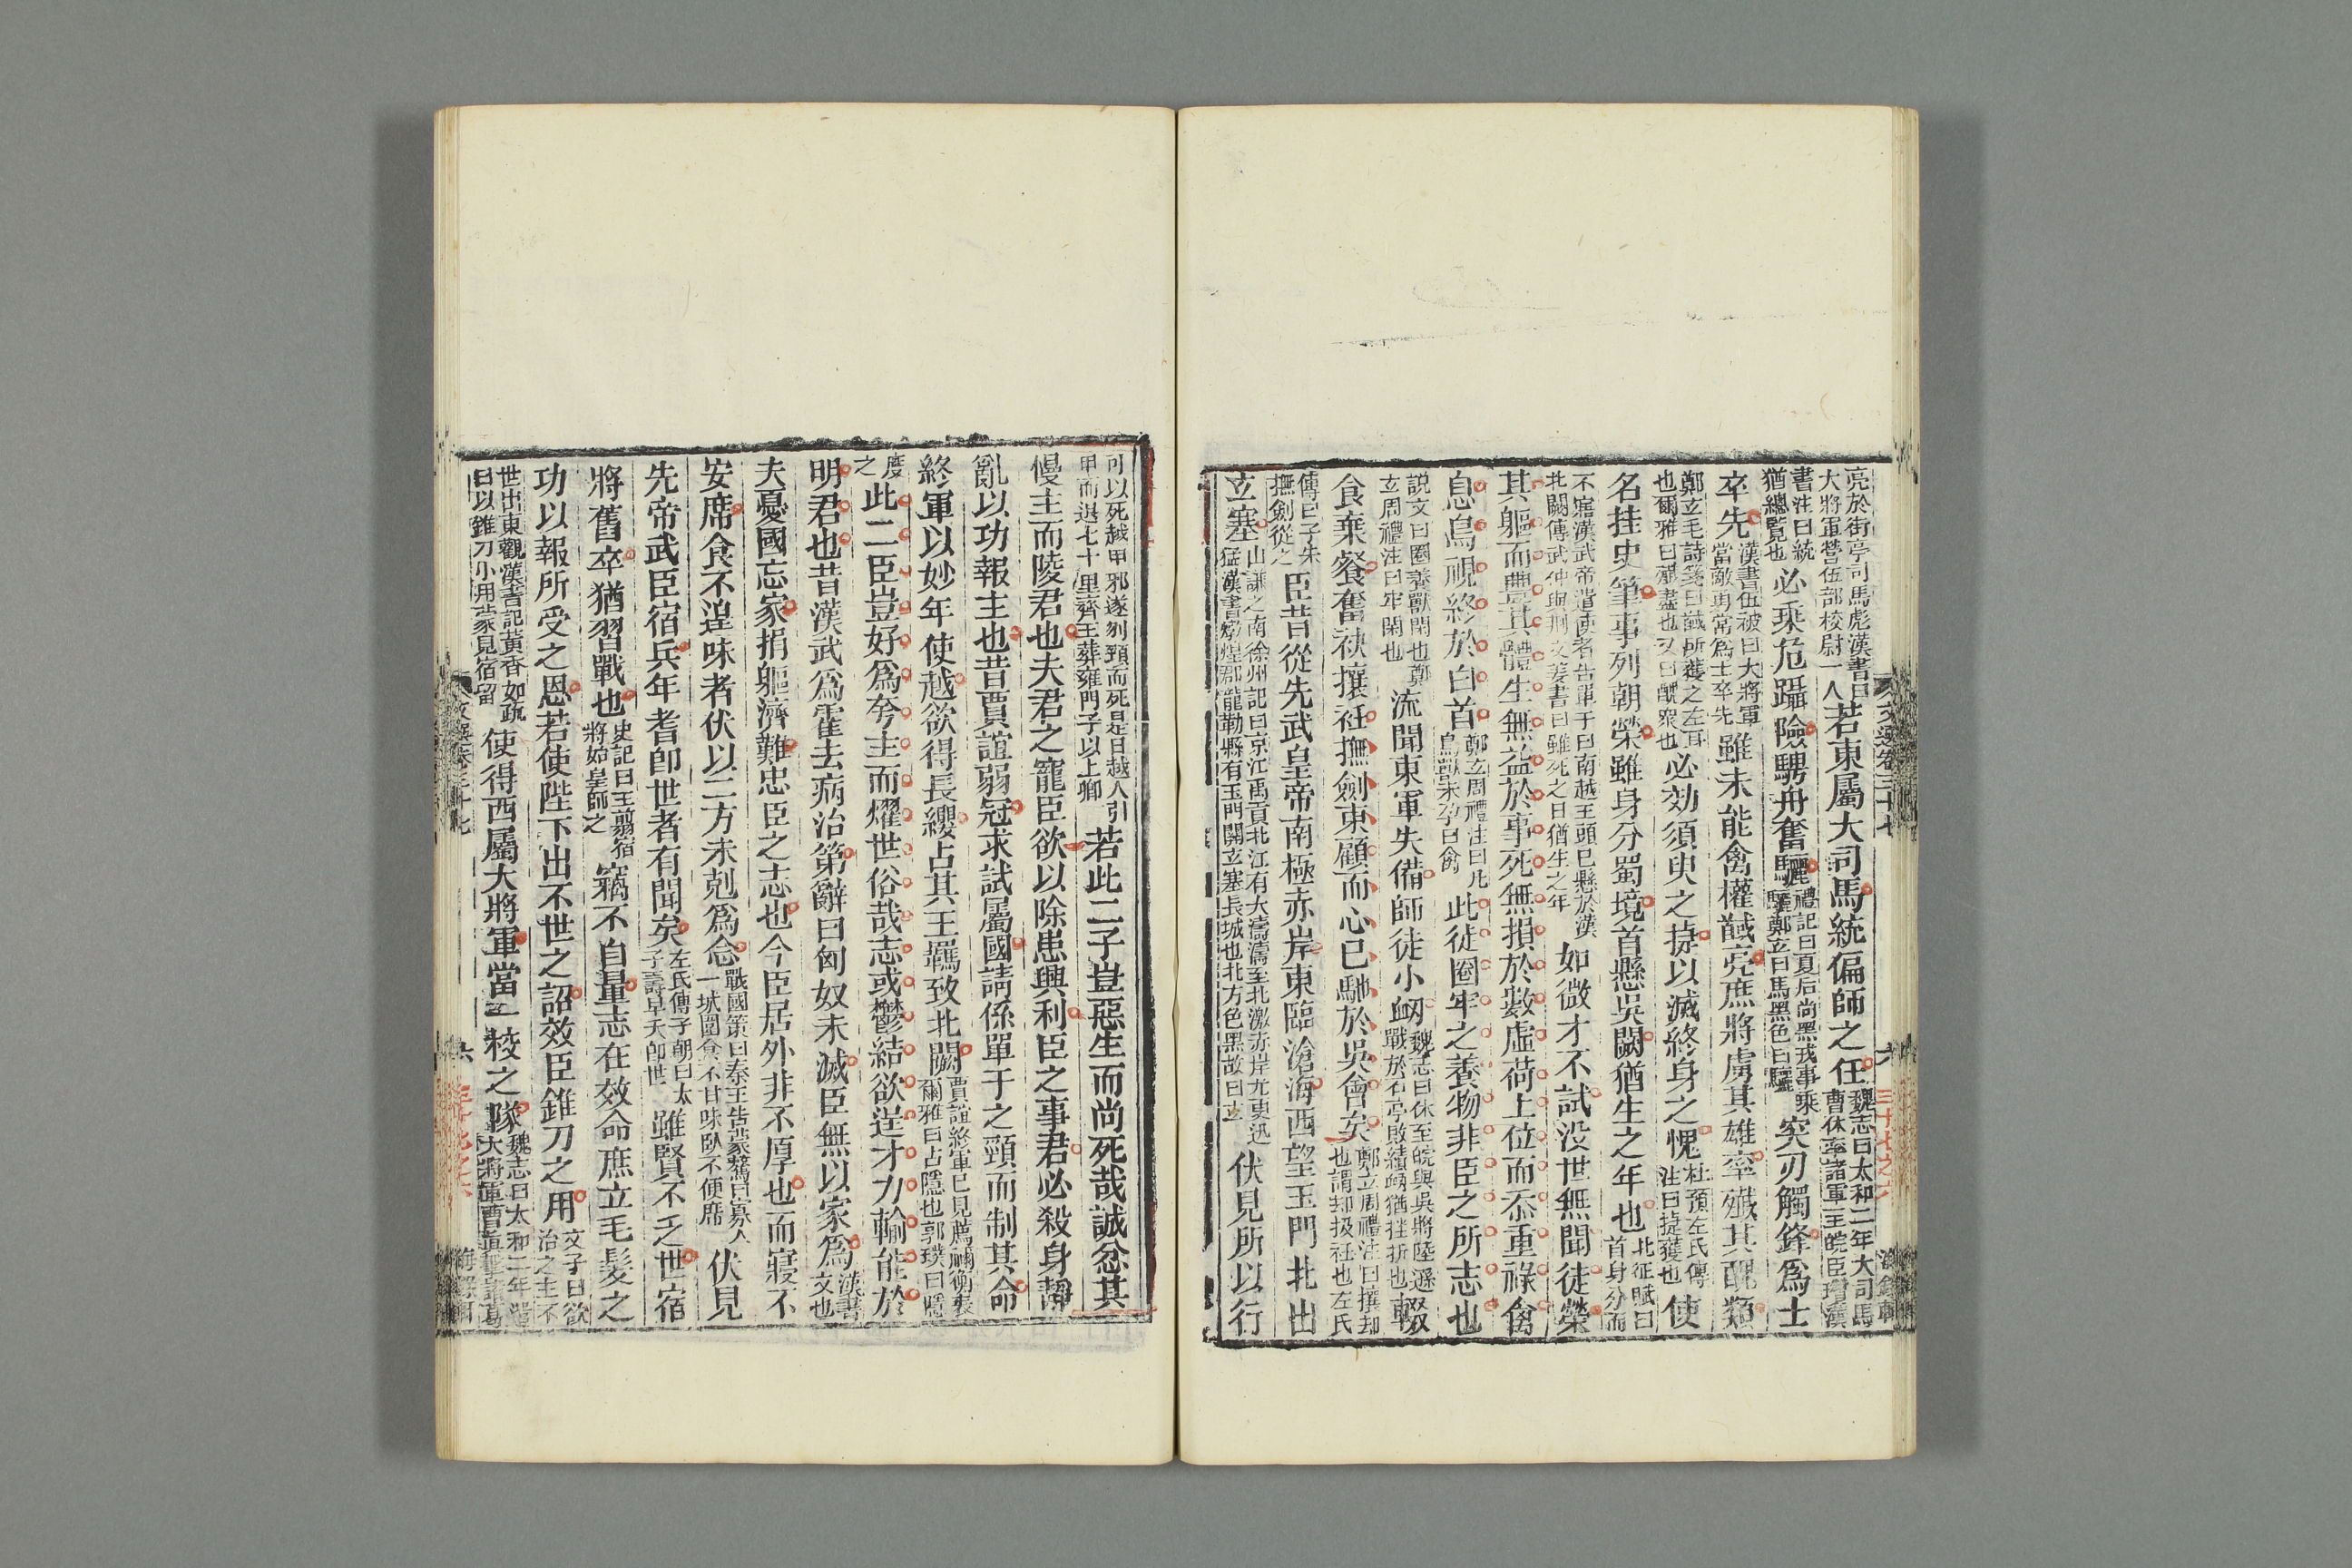 亮於街亭司馬彪漢書曰
大將軍營伍部校尉一人若東屬大司馬統偏師之任魏志曰太和二年大司馬
曹休率諸軍至皖臣瓚漢
書注曰統
猶總覽也必乘危躡險騁舟奮驪禮記曰夏后尚黑戎事乘
驪鄭玄曰馬黑色曰驪突刃觸鋒爲士
卒先漢書伍被曰大將軍
當敵勇常爲士卒先雖未能禽權馘亮庶將虜其雄率殲其醜類
鄭玄毛詩箋曰馘所獲之左耳
也爾雅曰殲盡也又曰醜衆也必効須臾之捷以滅終身之愧杜預左氏傳
注曰捷獲也使
名挂史筆事列朝榮雖身分蜀境首懸吳闕猶生之年也北征賦曰
首身分而
不寤漢武帝遣使者告單于曰南越王頭已懸於漢
北闕傅武仲與荆文姜書曰雖死之日猶生之年如微才不試没世無聞徒榮
其軀而豐其體生無益於事死無損於數虛荷上位而忝重祿禽
息鳥視終於白首鄭玄周禮注曰凡
鳥獸未孕曰禽此徒圈牢之養物非臣之所志也
説文曰圈養獸閑也鄭
玄周禮注曰牢閑也流聞東軍失備師徒小衂魏志曰休至皖與吳將陸遜
戰於石亭敗績衂猶挫折也輟
食棄餐奮袂攘衽撫劍東顧而心已馳於吳會矣鄭玄周禮注曰攘却
也謂却扱衽也左氏
傳曰子朱
撫劍從之臣昔從先武皇帝南極赤岸東臨滄海西望玉門北出
玄塞山謙之南徐州記曰京江禹貢北江有大濤濤至北激赤岸尤更迅
猛漢書燉煌郡龍勒縣有玉門關玄塞長城也北方色黑故曰玄伏見所以行
可以死越甲邪遂刎頸而死是日越人引
甲而退七十里齊王葬雍門子以上卿若此二子豈惡生而尚死哉誠忿其
慢主而陵君也夫君之寵臣欲以除患興利臣之事君必殺身靜
亂以功報主也昔賈誼弱冠求試屬國請係單于之頸而制其命
終軍以妙年使越欲得長纓占其王羈致北闕賈誼終軍已見薦禰衡表
爾雅曰占隱也郭璞曰隱
度
之此二臣豈好爲夸主而燿世俗哉志或鬱結欲逞才力輸能於
明君也昔漢武爲霍去病治第辭曰匈奴未滅臣無以家爲漢書
文也
夫憂國忘家捐軀濟難忠臣之志也今臣居外非不厚也而寢不
安席食不遑味者伏以二方未剋爲念戰國策曰秦王告蒙驁曰寡人
一城圍食不甘味卧不便席伏見
先帝武臣宿兵年耆卽世者有聞矣左氏傳子朝曰太
子壽早夭卽世雖賢不乏世宿
將舊卒猶習戰也史記曰王翦宿
將始皇師之竊不自量志在效命庶立毛髮之
功以報所受之恩若使陛下出不世之詔效臣錐刀之用文子曰欲
治之主不
世出東觀漢書記黃香如疏
曰以錐刀小用蒙見宿留使得西屬大將軍當一校之隊魏志曰太和二年遣
大將軍曹眞擊諸葛